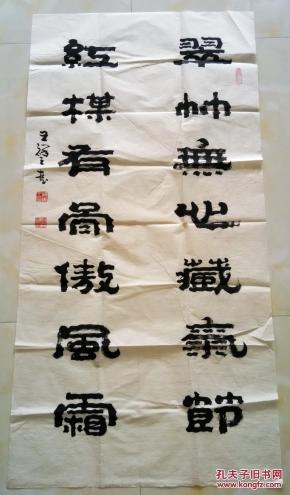 翠竹無心藏氣節
紅楳有骨傲風霜
孔夫子旧书网